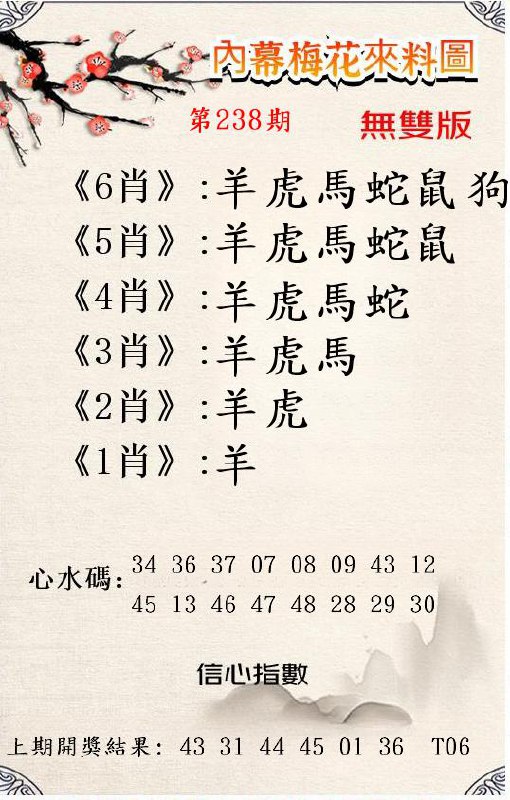 內幕梅花來料圖
第238期 無雙版
《6肖》:羊虎馬蛇鼠狗
《5肖》:羊虎馬蛇鼠
《4肖》:羊虎馬蛇
《3肖》:羊虎馬
《2肖》:羊虎
《1肖》:羊
心水碼: 34 36 37 07 08 09 43 12
45 13 46 47 48 28 29 30
信心指數
上期開獎結果: 43 31 44 45 01 36 T06